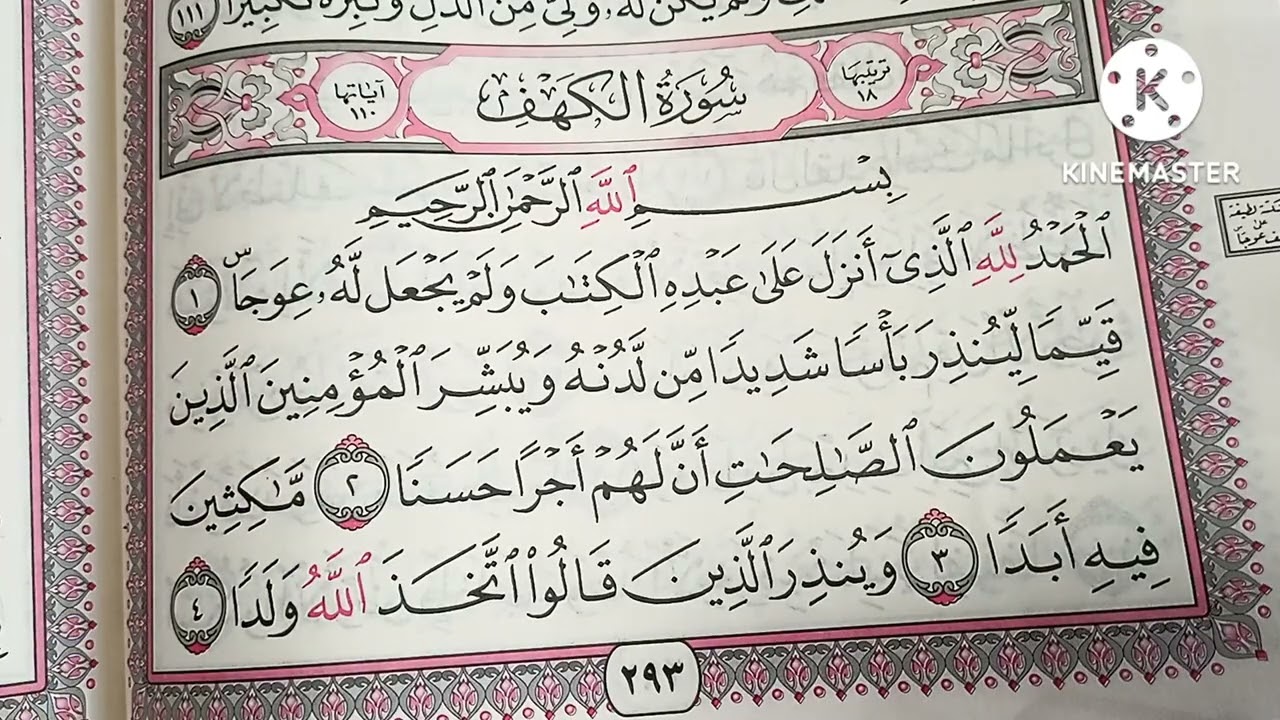 وَلَمْ يَكُن لَّهُۥ وَلِيٌّ مِّنَ ٱلذُّلِّ وَكَبِّرْهُ تَكْبِيرًا ١١١
ترتيبها ١٨
سُورَةُ الكَهْفِ
آياتها ١١٠
بِسْمِ ٱللَّهِ ٱلرَّحْمَٰنِ ٱلرَّحِيمِ
ٱلْحَمْدُ لِلَّهِ ٱلَّذِىٓ أَنزَلَ عَلَىٰ عَبْدِهِ ٱلْكِتَٰبَ وَلَمْ يَجْعَل لَّهُۥ عِوَجَاۜ ١
قَيِّمًا لِّيُنذِرَ بَأْسًا شَدِيدًا مِّن لَّدُنْهُ وَيُبَشِّرَ ٱلْمُؤْمِنِينَ ٱلَّذِينَ
يَعْمَلُونَ ٱلصَّٰلِحَٰتِ أَنَّ لَهُمْ أَجْرًا حَسَنًا ٢ مَّٰكِثِينَ
فِيهِ أَبَدًا ٣ وَيُنذِرَ ٱلَّذِينَ قَالُوا۟ ٱتَّخَذَ ٱللَّهُ وَلَدًا ٤
٢٩٣
K
KINEMASTER